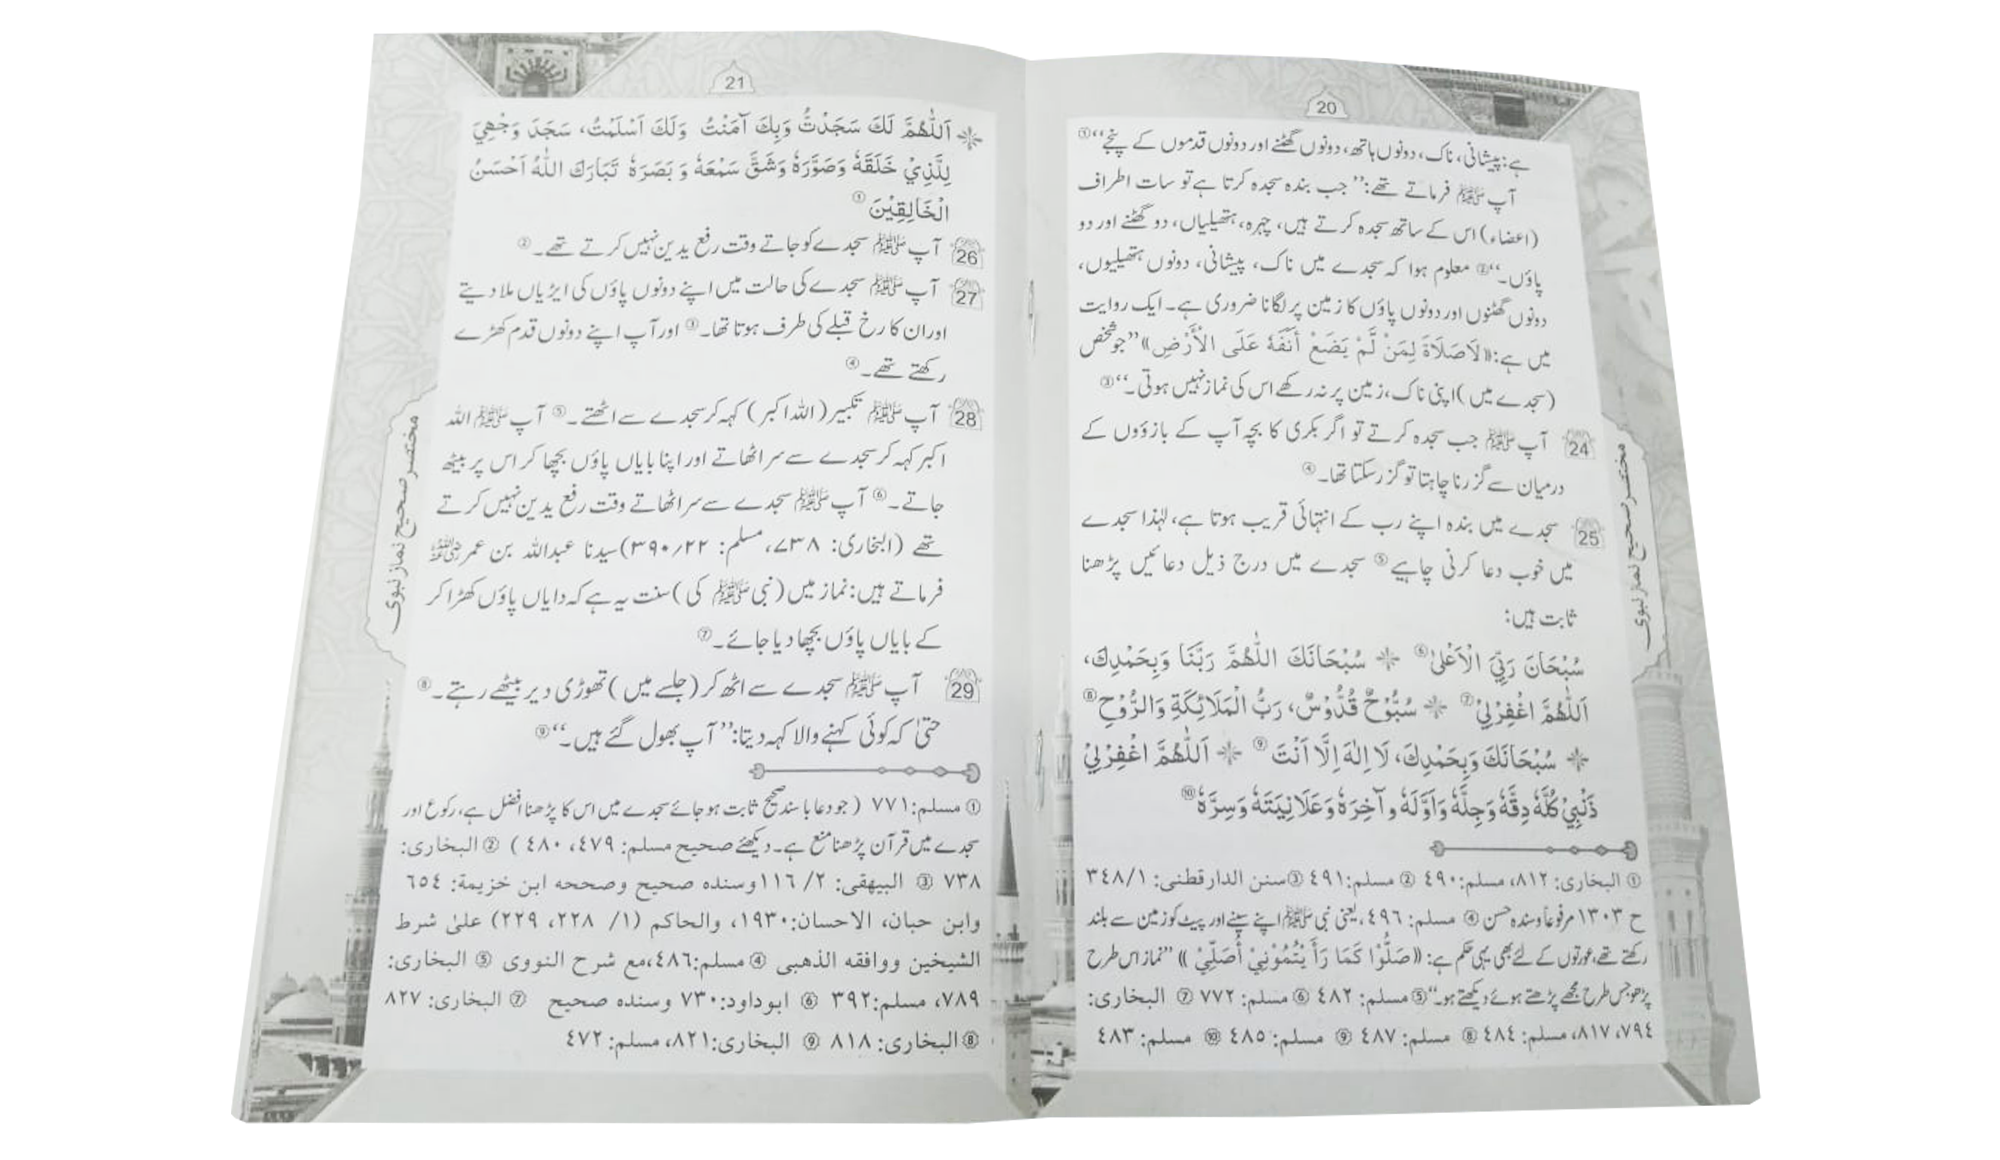 20
ہے: پیشانی، ناک، دونوں ہاتھ، دونوں گھٹنے اور دونوں قدموں کے پنجے‘‘①
آپ ﷺ فرماتے تھے: ’’جب بندہ سجدہ کرتا ہے تو سات اطراف
(اعضاء) اس کے ساتھ سجدہ کرتے ہیں، چہرہ، ہتھیلیاں، دو گھٹنے اور دو
پاؤں۔‘‘② معلوم ہوا کہ سجدے میں ناک، پیشانی، دونوں ہتھیلیوں،
دونوں گھٹنوں اور دونوں پاؤں کا زمین پر لگانا ضروری ہے۔ ایک روایت
میں ہے: «لَاصَلَاةَ لِمَنْ لَّمْ يَضَعْ أَنْفَهٗ عَلَى الْأَرْضِ» ’’جو شخص
(سجدے میں) اپنی ناک، زمین پر نہ رکھے اس کی نماز نہیں ہوتی۔‘‘③
24 آپ ﷺ جب سجدہ کرتے تو اگر بکری کا بچہ آپ کے بازؤوں کے
درمیان سے گزرنا چاہتا تو گزر سکتا تھا۔④
25 سجدے میں بندہ اپنے رب کے انتہائی قریب ہوتا ہے، لہٰذا سجدے
میں خوب دعا کرنی چاہیے⑤ سجدے میں درج ذیل دعائیں پڑھنا
ثابت ہیں:
سُبْحَانَ رَبِّيَ الْاَعْلىٰ⑥ ✵ سُبْحَانَكَ اللّٰهُمَّ رَبَّنَا وَبِحَمْدِكَ،
اَللّٰهُمَّ اغْفِرْلِيْ⑦ ✵ سُبُّوْحٌ قُدُّوْسٌ، رَبُّ الْمَلَائِكَةِ وَالرُّوْحِ⑧
✵ سُبْحَانَكَ وَبِحَمْدِكَ، لَا اِلٰهَ اِلَّا اَنْتَ⑨ ✵ اَللّٰهُمَّ اغْفِرْلِيْ
ذَنْبِيْ كُلَّهٗ دِقَّهٗ وَجِلَّهٗ وَاَوَّلَهٗ وآخِرَهٗ وَعَلَانِيَتَهٗ وَسِرَّهٗ⑩
① البخاری: ٨١٢، مسلم: ٤٩٠ ② مسلم: ٤٩١ ③ سنن الدارقطنی: ٣٤٨/١
ح ١٣٠٣ مرفوعاً وسندہ حسن ④ مسلم: ٤٩٦، یعنی نبی ﷺ اپنے سینے اور پیٹ کو زمین سے بلند
رکھتے تھے، عورتوں کے لئے بھی یہی حکم ہے: «صَلُّوْا كَمَا رَأَيْتُمُوْنِيْ أُصَلِّيْ» ’’نماز اس طرح
پڑھو جس طرح مجھے پڑھتے ہوئے دیکھتے ہو۔‘‘⑤ مسلم: ٤٨٢ ⑥ مسلم: ٧٧٢ ⑦ البخاری:
٧٩٤، ٨١٧، مسلم: ٤٨٤ ⑧ مسلم: ٤٨٧ ⑨ مسلم: ٤٨٥ ⑩ مسلم: ٤٨٣
مختصر صحیح نماز نبوی
21
✵ اَللّٰهُمَّ لَكَ سَجَدْتُّ وَبِكَ آمَنْتُ وَلَكَ اَسْلَمْتُ، سَجَدَ وَجْهِيَ
لِلَّذِيْ خَلَقَهٗ وَصَوَّرَهٗ وَشَقَّ سَمْعَهٗ وَ بَصَرَهٗ تَبَارَكَ اللّٰهُ اَحْسَنُ
الْخَالِقِيْنَ①
26 آپ ﷺ سجدے کو جاتے وقت رفع یدین نہیں کرتے تھے۔②
27 آپ ﷺ سجدے کی حالت میں اپنے دونوں پاؤں کی ایڑیاں ملا دیتے
اور ان کا رخ قبلے کی طرف ہوتا تھا۔③ اور آپ اپنے دونوں قدم کھڑے
رکھتے تھے۔④
28 آپ ﷺ تکبیر (اللہ اکبر) کہہ کر سجدے سے اٹھتے۔⑤ آپ ﷺ اللہ
اکبر کہہ کر سجدے سے سر اٹھاتے اور اپنا بایاں پاؤں بچھا کر اس پر بیٹھ
جاتے۔⑥ آپ ﷺ سجدے سے سر اٹھاتے وقت رفع یدین نہیں کرتے
تھے (البخاری: ٧٣٨، مسلم: ٣٩٠/٢٢) سیدنا عبداللہ بن عمر رضی اللہ عنہ
فرماتے ہیں: نماز میں (نبی ﷺ کی) سنت یہ ہے کہ دایاں پاؤں کھڑا کر
کے بایاں پاؤں بچھا دیا جائے۔⑦
29 آپ ﷺ سجدے سے اٹھ کر (جلسے میں) تھوڑی دیر بیٹھے رہتے۔⑧
حتیٰ کہ کوئی کہنے والا کہہ دیتا: ’’آپ بھول گئے ہیں۔‘‘⑨
① مسلم: ٧٧١ (جو دعا باسند صحیح ثابت ہو جائے سجدے میں اس کا پڑھنا افضل ہے، رکوع اور
سجدے میں قرآن پڑھنا منع ہے۔ دیکھئے صحیح مسلم: ٤٧٩، ٤٨٠) ② البخاری:
٧٣٨ ③ البیهقی: ٢/ ١١٦ وسنده صحیح وصححه ابن خزیمة: ٦٥٤
وابن حبان، الاحسان: ١٩٣٠، والحاکم (١/ ٢٢٨، ٢٢٩) علیٰ شرط
الشیخین ووافقه الذهبی ④ مسلم: ٤٨٦، مع شرح النووی ⑤ البخاری:
٧٨٩، مسلم: ٣٩٢ ⑥ ابوداود: ٧٣٠ وسنده صحیح ⑦ البخاری: ٨٢٧
⑧ البخاری: ٨١٨ ⑨ البخاری: ٨٢١، مسلم: ٤٧٢
مختصر صحیح نماز نبوی